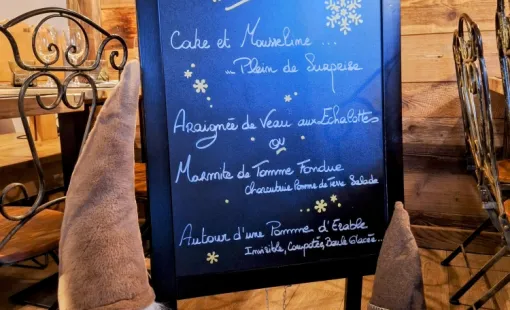 Cake et Mousseline ...
un Plein de Surprise
Araignée de Veau aux Echalottes
ou
Marmite de Tomme Fondue
Charcuterie Pomme de Terre Salade
Autour d'une Pomme d'Erable
Invisible, Compotée, Boule Glacée...